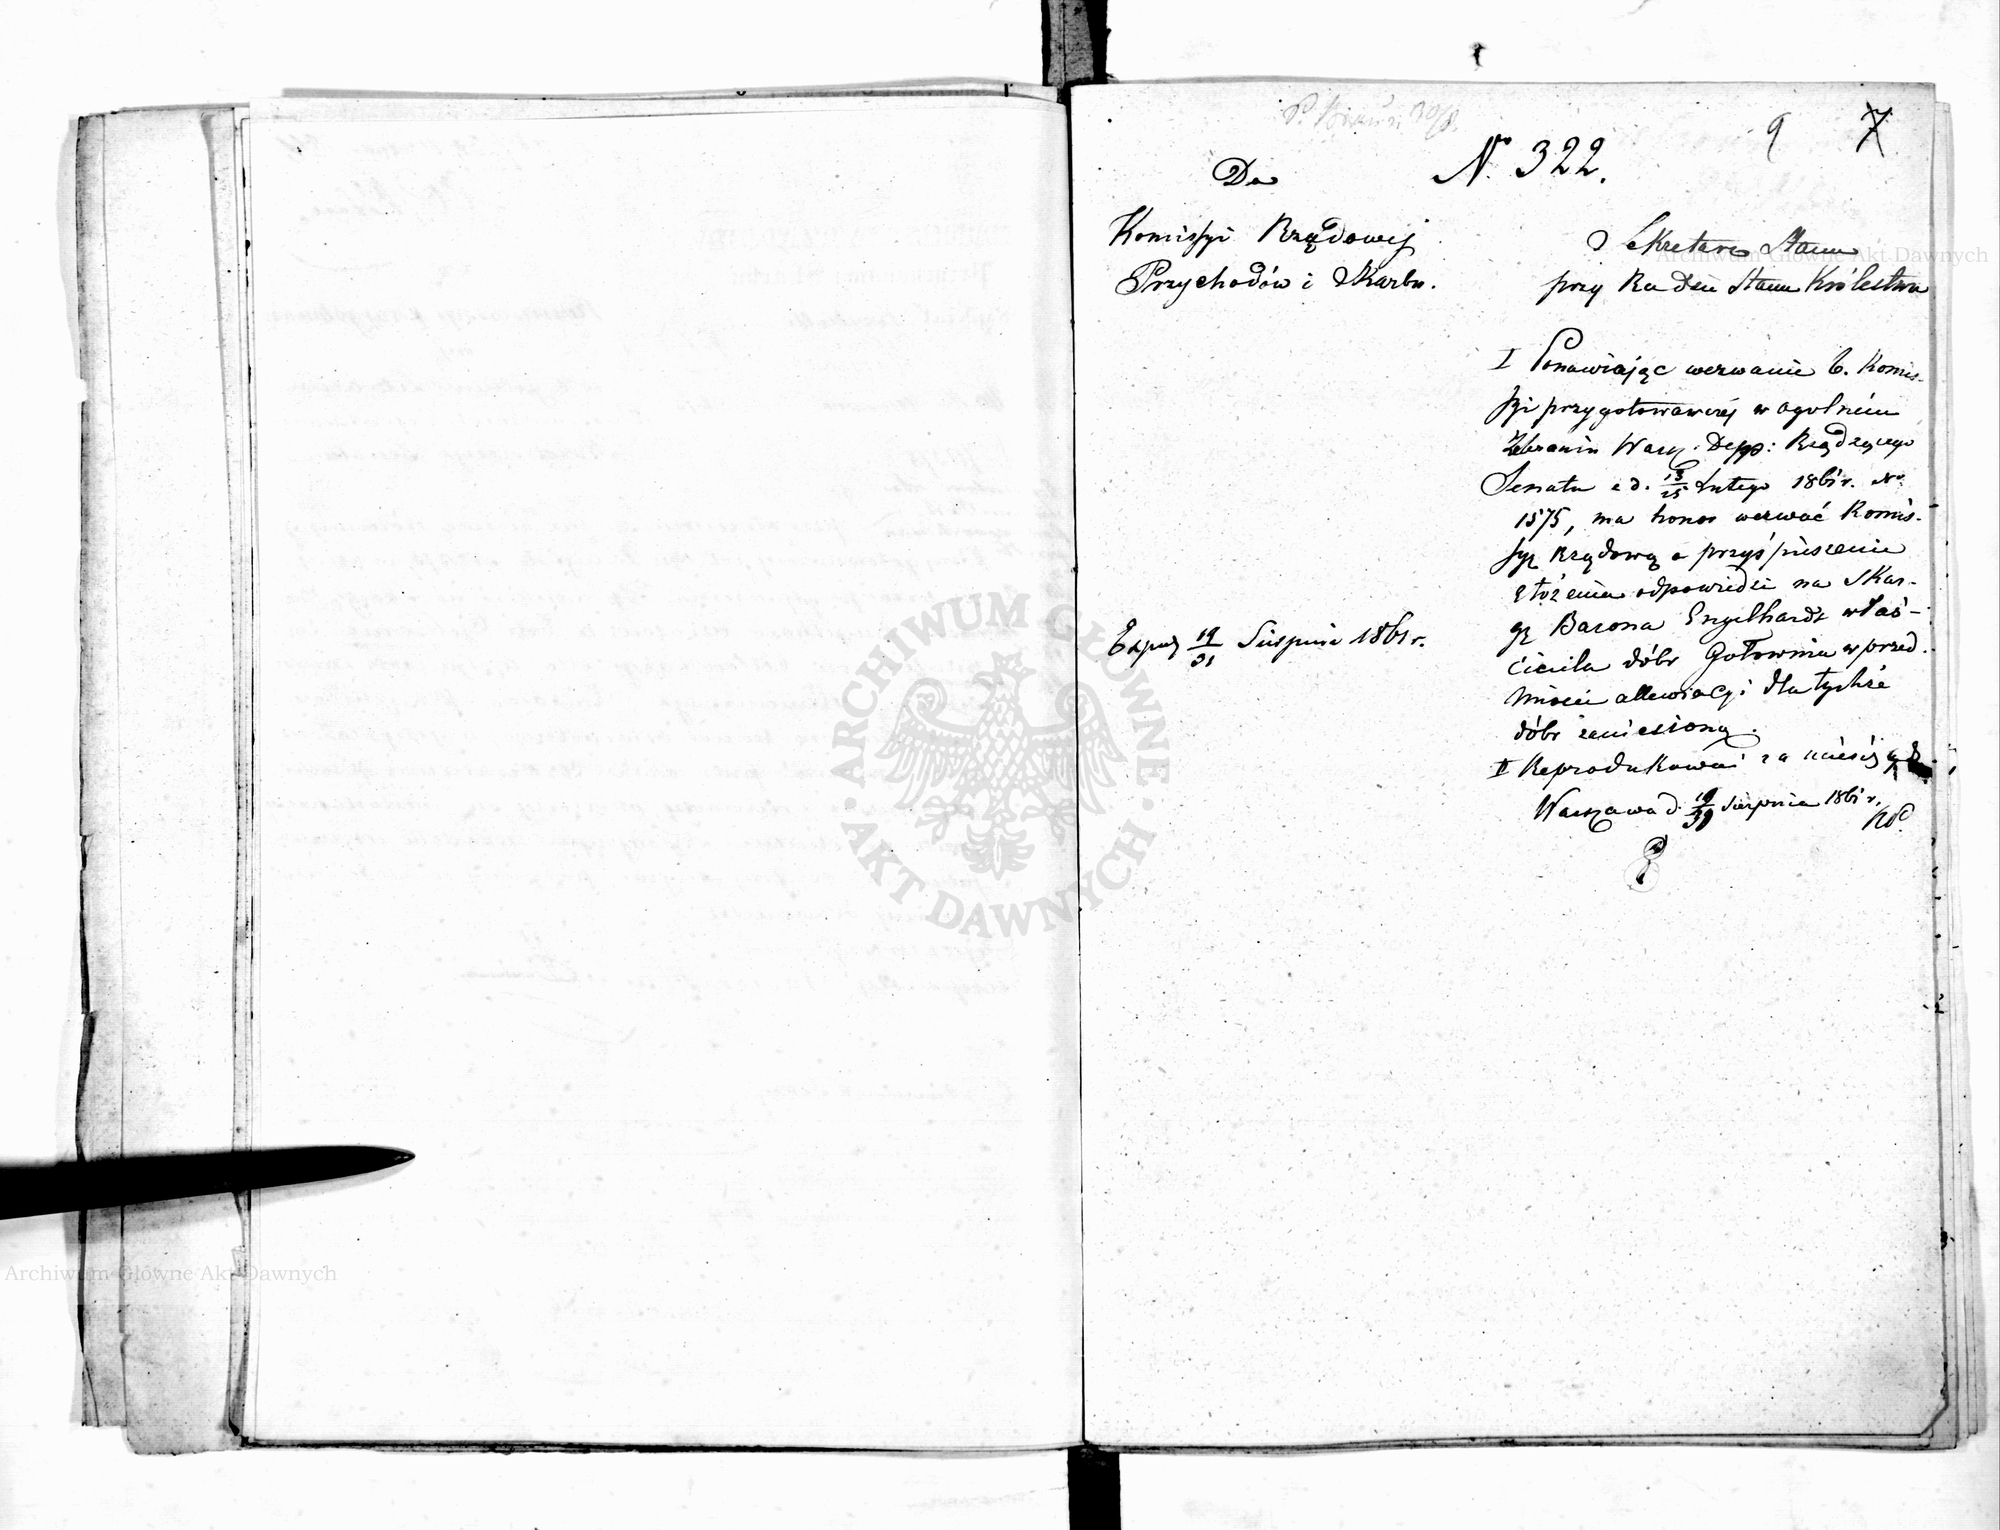 9 7
№ 322.
Do
Komissyi Rządowej
Przychodów i Skarbu.
Sekretarz Stanu
przy Radzie Stanu Królestwa
I Ponawiając wezwanie b. Komis-
syi przygotowawczej w ogolném
Zebraniu Warsz. Depp: Rządzącego
Senatu z d. 13/25 Lutego 1861 r. No
1575, ma honor wezwać Komis-
syę Rządową o przyśpieszenie
złożenia odpowiedzi na Skar-
gę Barona Engelhardt właś-
ciciela dóbr Gołownia w przed-
miocie allewiacyi dla tychże
dóbr zaniesioną.
II Reprodukować za miesiąc
Warszawa d. 19/31 Sierpnia 1861 r.
Exped 19/31 Sierpnia 1861 r.
ARCHIWUM GŁÓWNE
AKT DAWNYCH
Archiwum Główne Akt Dawnych
Archiwum Główne Akt Dawnych